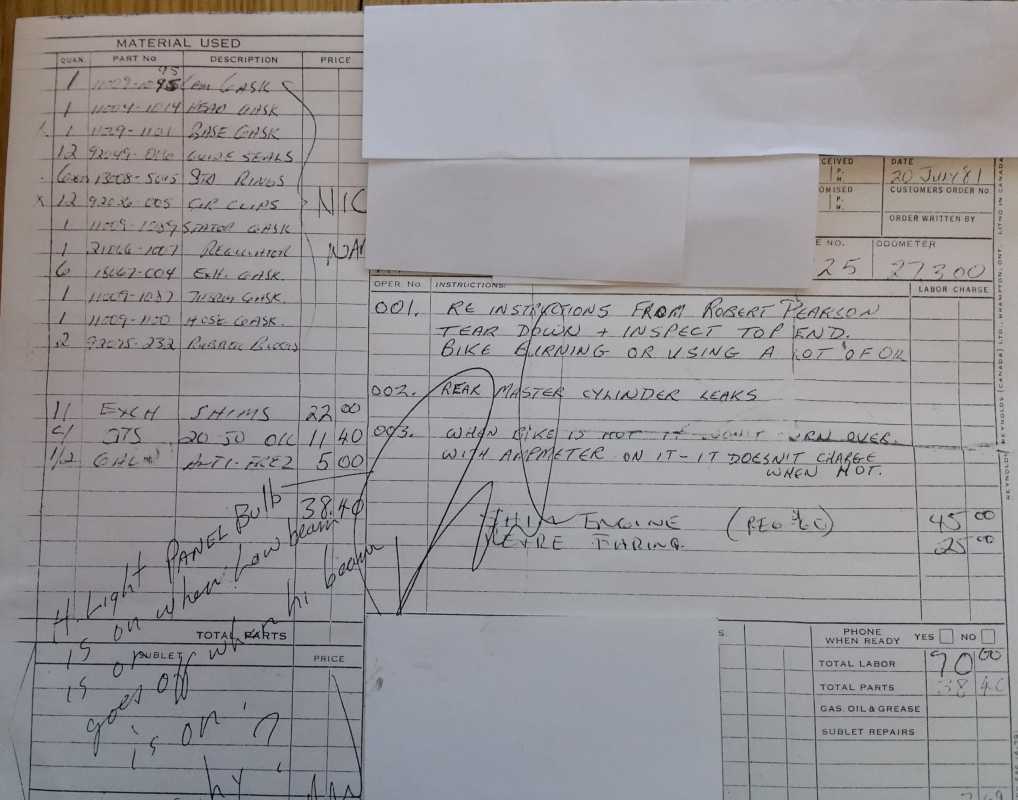 MATERIAL USED
QUAN. PART No DESCRIPTION PRICE
1 11009-1095 GASK
1 11004-1014 HEAD GASK
1 BASE GASK
12 92049- GUIDE SEALS
13008- STD RINGS
X 12 92036-005 CIR CLIPS
NIC
1 11009-1089 STATOR GASK
1 21066-1007 REGULATOR
6 EXH. GASK.
1 11009- GASK.
1 11009- HOSE GASK.
2 92075-232
11 EXCH SHIMS 22 00
20 50 OIL 11 40
1/2 GAL ANTI-FREZ 5 00
38.40
H. Light PANEL Bulb
is on when Low beam
is on when hi beam
goes off
is on ?
TOTAL PARTS
SUBLET PRICE
CEIVED
P.
M.
DATE
20 JULY 81
OMISED
P.
M.
CUSTOMERS ORDER No.
ORDER WRITTEN BY
E NO. ODOMETER
25 27300
OPER. No. INSTRUCTIONS: LABOR CHARGE
001. RE INSTRUCTIONS FROM ROBERT PEARSON
TEAR DOWN + INSPECT TOP END.
BIKE BURNING OR USING A LOT OF OIL
002. REAR MASTER CYLINDER LEAKS
003. WHEN BIKE IS HOT IT WON'T TURN OVER.
WITH AMPMETER ON IT - IT DOESN'T CHARGE
WHEN HOT.
SHIM ENGINE 45 00
25 00
S.
PHONE WHEN READY YES NO
TOTAL LABOR 90 00
TOTAL PARTS 38 40
GAS. OIL & GREASE
SUBLET REPAIRS